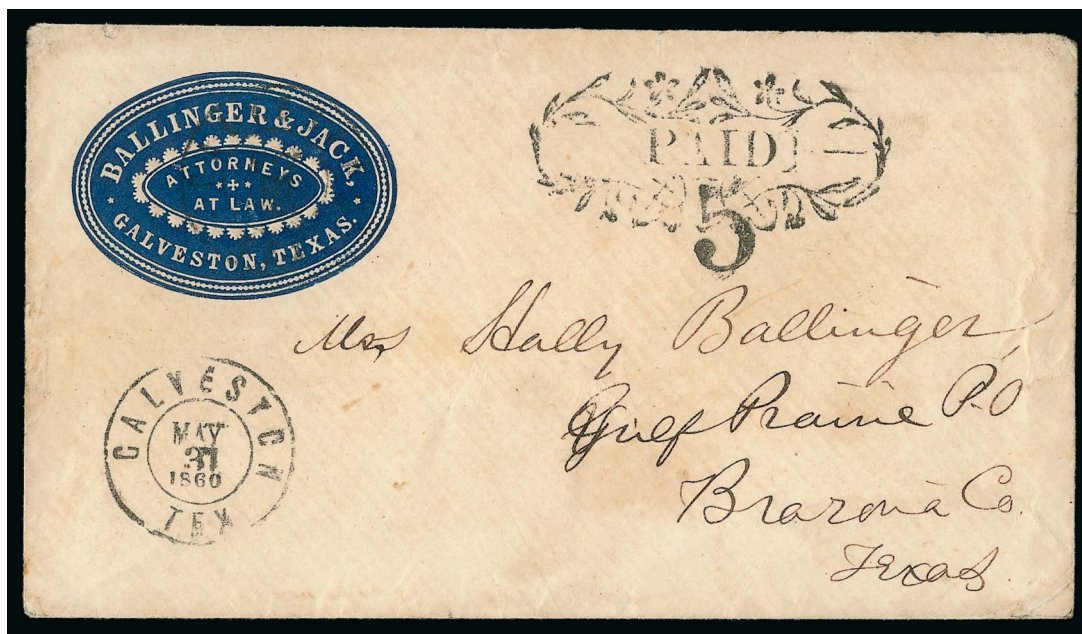 BALLINGER & JACK,
ATTORNEYS
AT LAW.
GALVESTON, TEXAS.
PAID
5
Mrs Hally Ballinger
Gulf Prairie P.O
Brazoria Co.
Texas
GALVESTON
MAY
31
1860
TEX